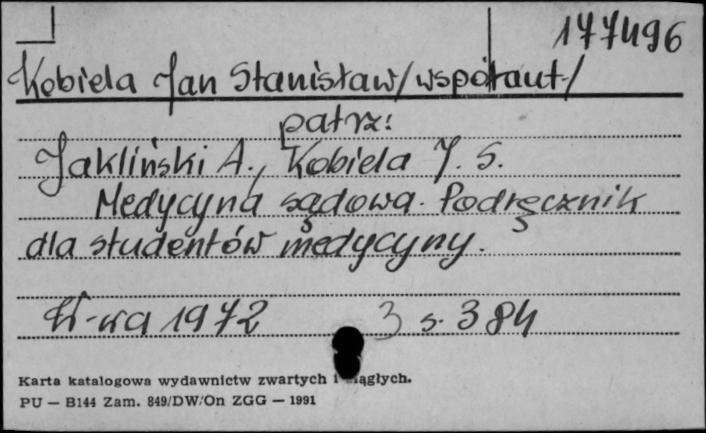 177496
Kobiela Jan Stanisław/współaut./
patrz:
Jakliński A., Kobiela J. S.
Medycyna sądowa. Podręcznik
dla studentów medycyny.
W-wa 1972 3 s. 384
Karta katalogowa wydawnictw zwartych i ciągłych.
PU — B144 Zam. 849/DW/On ZGG — 1991